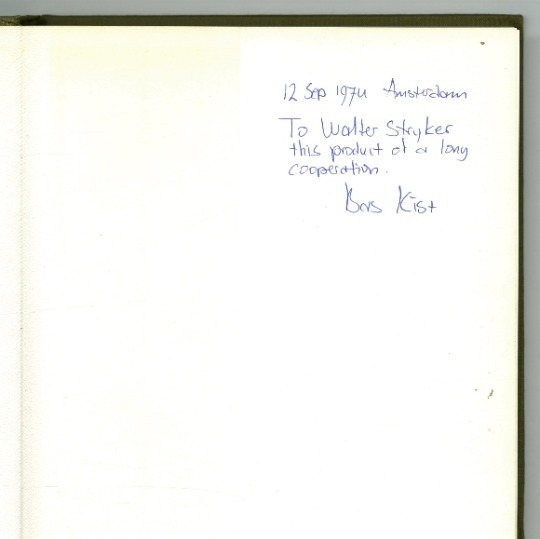 12 Sep 1974 Amsterdam
To Walter Stryker
this product of a long
cooperation.
Bas Kist